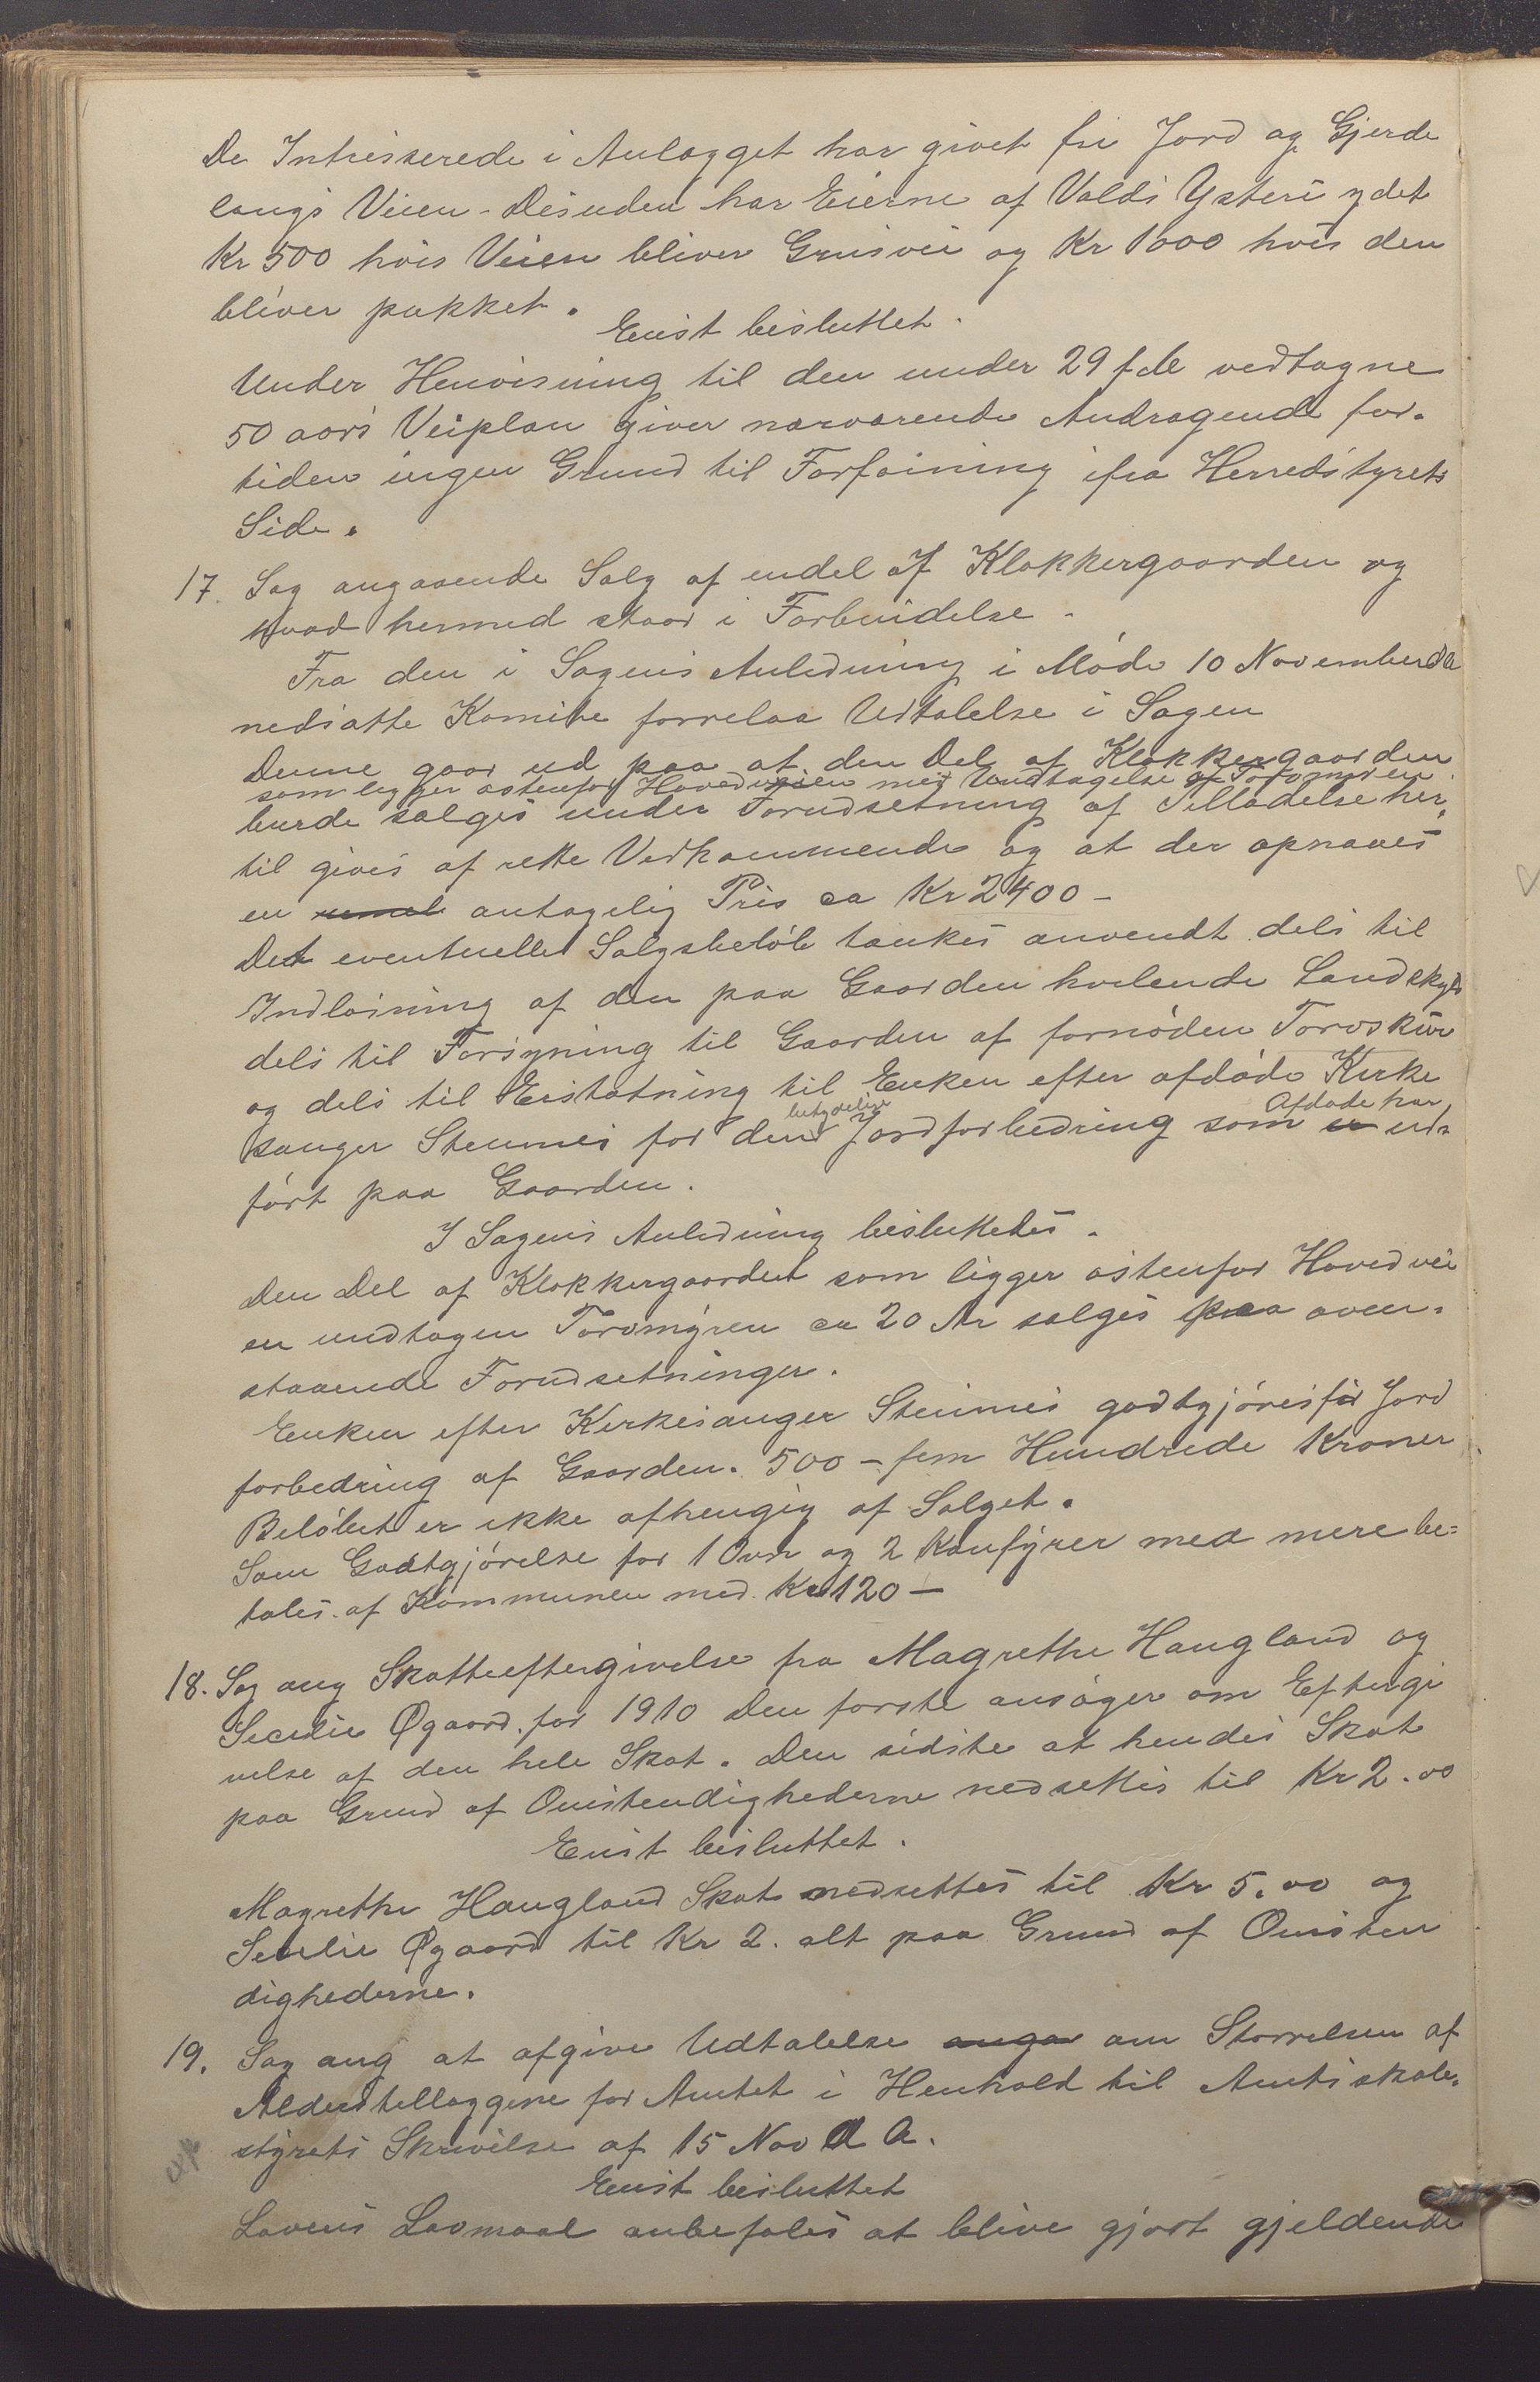 De Intresserede i Anlægget har givet fri Jord og Gjerde
langs Veien - Desuden har Eierne af Volds Ysteri ydet
Kr 500 hvis Veien bliver Grusvei og Kr 1000 hvis den
bliver pukket.
Enst besluttet.
Under Henvisning til den under 29 f.M. vedtagne
50 aars Veiplan giver nærværende Andragende for-
tiden ingen Grund til Forføining ifra Herredstyrets
Side.
17. Sag angaaende Salg af endel af Klokkergaarden og
hvad hermed staar i Forbindelse -
Fra den i Sagens Anledning i Møde 10 November d A
nedsatte Komite forrelaa Udtalelse i Sagen
Denne gaar ud paa at den Del af Klokkergaarden
som ligger østenfor Hovedveien med Undtagelse af Torvmyren
burde sælges under Forudsetning af Tilladelse her-
til gives af rette Vedkommende og at der opnaaes
en antagelig Pris ca Kr 2400 -
Det eventuelle Salgsbeløb tænkes anvendt dels til
Indløsning af den paa Gaarden hvilende Landskyld
dels til Forsyning til Gaarden af fornøden Torvskur
og dels til Erstatning til Enken efter afdøde Kirke
betydelige
Afdøde har
sanger Stennes for den Jordforbedring som er ud-
ført paa Gaarden.
I Sagens Anledning besluttedes.
Den Del af Klokkergaarden som ligger østenfor Hovedvei
en undtagen Torvmyren ca 20 Ar sælges paa oven-
staaende Forudsetninger.
Enken efter Kirkesanger Stennes godtgjøres for Jord
forbedring af Gaarden. 500 - fem Hundrede Kroner
Beløbet er ikke afhengig af Salget.
Som Godtgjørelse for 1 Ovn og 2 Komfyrer med mere be=
tales af Kommunen med Kr 120 -
18. Sag ang Skatteeftergivelse fra Magrethe Haugland og
Secelie Øgaard for 1910 Den første ansøger om Eftergi
velse af den hele Skat. Den sidste at hendes Skat
paa Grund af Omstendighederne nedsettes til Kr 2.00
Enst besluttet.
Magrethe Haugland Skat nedsettes til Kr 5.00 og
Secelie Øgaard til Kr 2. alt paa Grund af Omsten
dighederne.
19. Sag ang at afgive Udtalelse anga om Størrelsen af
Alderstillæggene for Amtet i Henhold til Amtsskole-
styrets Skrivelse af 15 Nov d A.
Enst besluttet
Lovens Lavmaal anbefales at blive gjort gjeldende